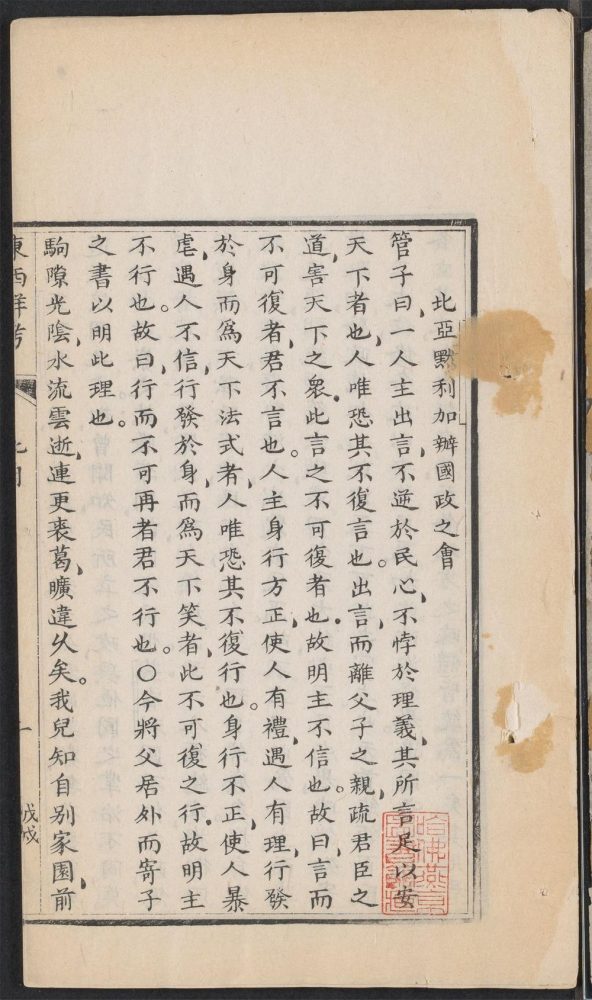 比亞默利加辦國政之會
管子曰、一人主出言、不逆於民心、不悖於理義、其所言足以安
天下者也、人唯恐其不復言也。出言、而離父子之親、疏君臣之
道、害天下之眾、此言之不可復者也。故明主不信也。故曰、言而
不可復者、君不言也。人主身行方正、使人有禮、遇人有理、行發
於身而為天下法式者、人唯恐其不復行也。身行不正、使人暴
虐、遇人不信、行發於身、而為天下笑者、此不可復之行、故明主
不行也。故曰、行而不可再者君不行也。〇今將父居外而寄子
之書以明此理也。
駒隙光陰、水流雲逝、連更裘葛、曠違久矣。我兒知自別家園前、
東西洋考
戊戌